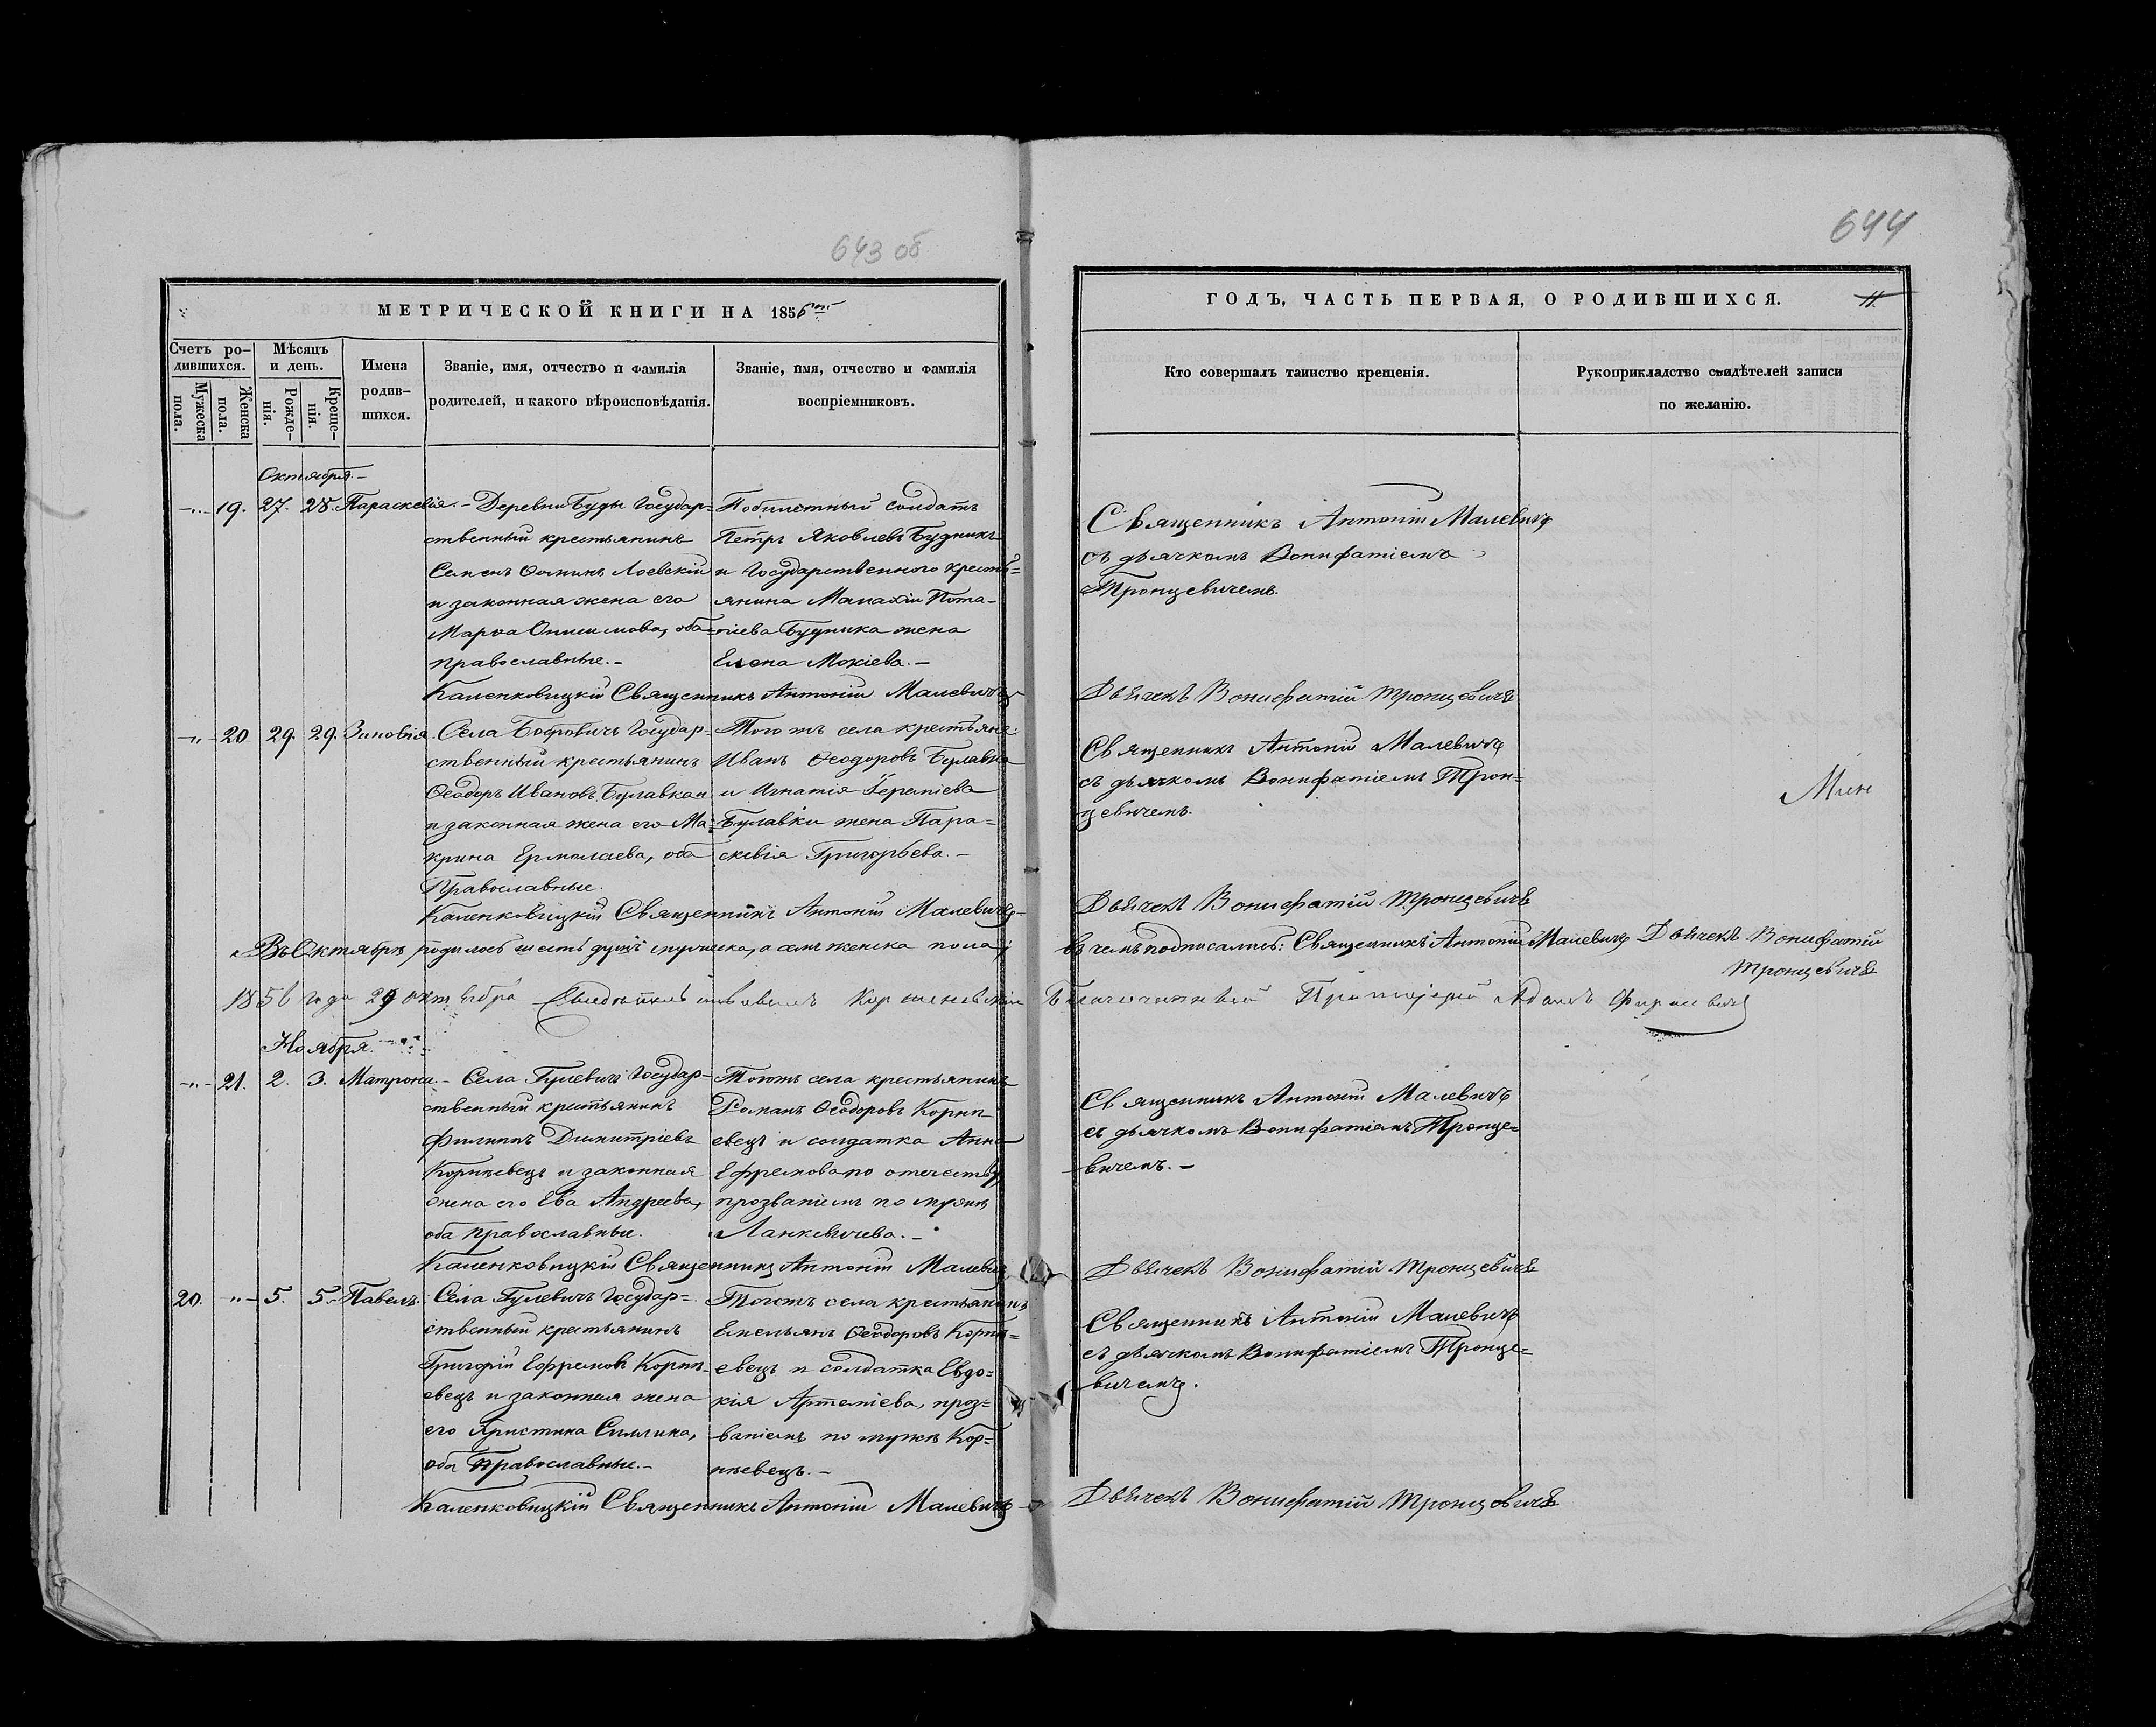 643 об
644
МЕТРИЧЕСКОЙ КНИГИ НА 1856й
ГОДЪ, ЧАСТЬ ПЕРВАЯ, О РОДИВШИХСЯ.
11.
Счетъ ро-
дившихся.
Мужеска
пола.
Женска
пола.
Мѣсяцъ
и день.
Рожде-
нія.
Креще-
нія.
Имена
родив-
шихся.
Званіе, имя, отчество и фамилія
родителей, и какого вѣроисповѣданія.
Званіе, имя, отчество и фамилія
воспріемниковъ.
Кто совершалъ таинство крещенія.
Рукоприкладство свидѣтелей записи
по желанію.
Октября.-
-„- 19. 27. 28. Параскевія.-
Деревни Буды Государ=
ственный крестьянинъ
Семенъ Ѳоминъ Лоевскій
и законная жена его
Марѳа Онисимова, оба
православные.-
Побилетный солдатъ
Петръ Яковлевъ Будникъ
и Государственного кресть=
янина Малахіи Пота-
піева Будника жена
Елена Мокіева.-
Священникъ Антоній Малевичъ
съ дьячкомъ Вонифатіемъ
Тронцевичемъ.
Каленковицкій Священникъ Антоній Малевичъ
Дьячекъ Вонифатій Тронцевичъ
-„- 20. 29. 29. Зиновія.
Села Бобровичъ Государ-
ственный крестьянинъ
Ѳеодоръ Ивановъ Булавка и
и законная жена его Ма-
крина Ермолаева, оба
Православные.
Тогожъ села крестьяне:
Иванъ Ѳеодоровъ Булавка
и Игнатія
Булавки жена Пара=
скевія Григорьева.-
Священникъ Антоній Малевичъ
съ дьячкомъ Вонифатіемъ Трон=
цевичемъ.
Каленковицкій Священникъ Антоній Малевичъ
Дьячекъ Вонифатій Тронцевичъ
Въ Октябрѣ родилось шесть душъ мужеска, а семь женска пола;
въ чемъ подписались: Священникъ Антоній Малевичъ Дьячекъ Вонифатій
Тронцевичъ
1856 года 29 октября
Благочинный Адамъ
Ноября.
-„- 21. 2. 3. Матрона.-
Села Гулевичъ Государ-
ственный крестьянинъ
Филиппъ Димитріевъ
Корниевецъ и законная
жена его Ева Андреева,
оба православные.
Тогожъ села крестьянинъ
Романъ Ѳеодоровъ Корни-
евецъ и солдатка Анна
Ефремова по отчеству,
прозваніемъ по мужѣ
Ланкевичева.-
Священникъ Антоній Малевичъ
съ дьячкомъ Вонифатіемъ Тронце=
вичемъ.-
Каленковицкій Священникъ Антоній Малевичъ
Дьячекъ Вонифатій Тронцевичъ
20. -„- 5. 5. Павелъ.
Села Гулевичъ Государ=
ственный крестьянинъ
Григорій Ефремовъ Корни-
евецъ и законная жена
его Христина Симина,
оба Православные.-
Тогожъ села крестьянинъ
Емельянъ Ѳеодоровъ Корни=
евецъ и солдатка Евдо=
кія Артеміева, проз=
ваніемъ по мужѣ Кор=
ниевецъ.-
Священникъ Антоній Малевичъ
съ дьячкомъ Вонифатіемъ Тронце=
вичемъ.
Каленковицкій Священникъ Антоній Малевичъ
Дьячекъ Вонифатій Тронцевичъ